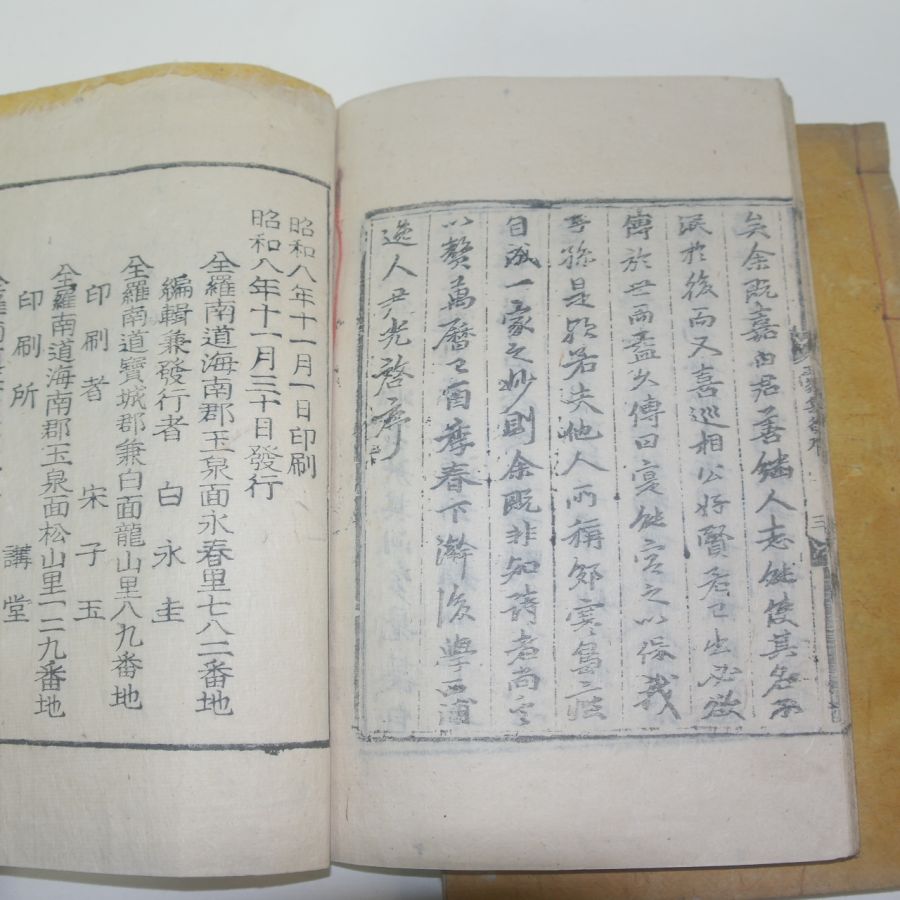 矣余既嘉白君善繼人志能使其名不
泯於後而又喜巡相公好賢若己出必欲
傳於世而久傳曰寔能容之以保我
子孫是歟若夫他人所稱郊寒島
自成一家之妙則余既非知詩者尚
以贅萬曆己酉春下澣後學西
逸人尹光啓序
三
昭和八年十一月一日印刷
昭和八年十一月三十日發行
全羅南道海南郡玉泉面永春里七八二番地
編輯兼發行者 白永圭
全羅南道寶城郡兼白面龍山里八九番地
印刷者 宋子玉
全羅南道海南郡玉泉面松山里一二九番地
印刷所 講堂
全羅南